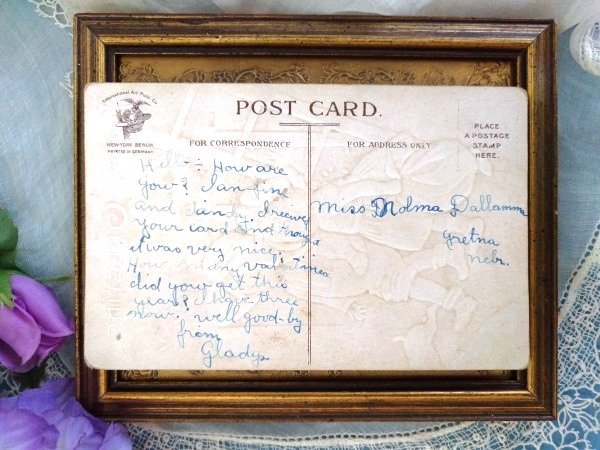 International Art Publ. Co.
NEW-YORK BERLIN
PRINTED IN GERMANY
POST CARD.
PLACE
A POSTAGE
STAMP
HERE.
FOR CORRESPONDENCE
FOR ADDRESS ONLY
Hello: How are
you? I an fine
and dandy. I receive
your card and
it was very nice.
How many valentines
did you get this
year? I have three
now. well good-by
from
Gladys
Miss Dallamma
Gretna
Nebr.